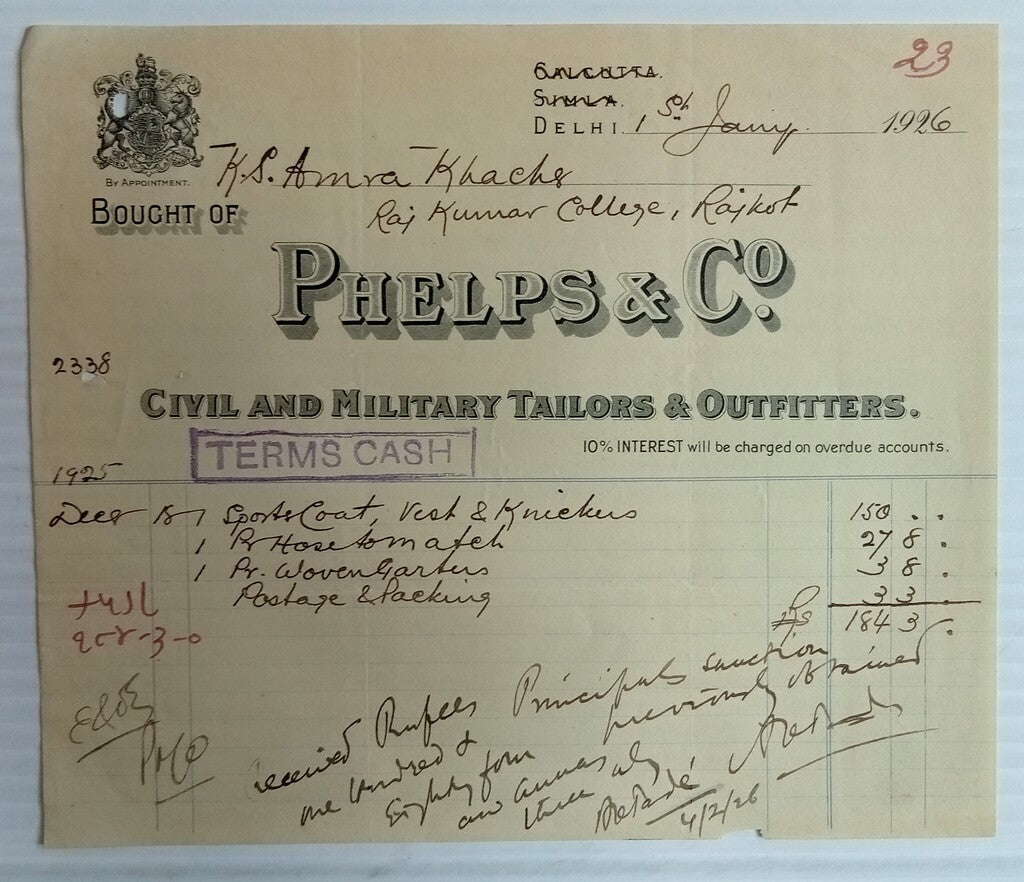 23
CALCUTTA.
SIMLA.
DELHI. 1st Jany. 1926
BY APPOINTMENT.
K.S. Amra Khacher
Raj Kumar College, Rajkot
BOUGHT OF
PHELPS & CO.
2338
CIVIL AND MILITARY TAILORS & OUTFITTERS.
TERMS CASH
10% INTEREST will be charged on overdue accounts.
1925
Decr 18 1 Sports Coat, Vest & Knickers 150 . .
1 Pr Hose to match 27 8 .
1 Pr. Woven Garters 3 8 .
Postage & Packing 3 3 .
Rs 184 3 .
૧૮૪-૩-૦
E&OE
Principals sanction
previously obtained
received Rupees
one hundred &
Eighty four
and annas
three only
4/2/26